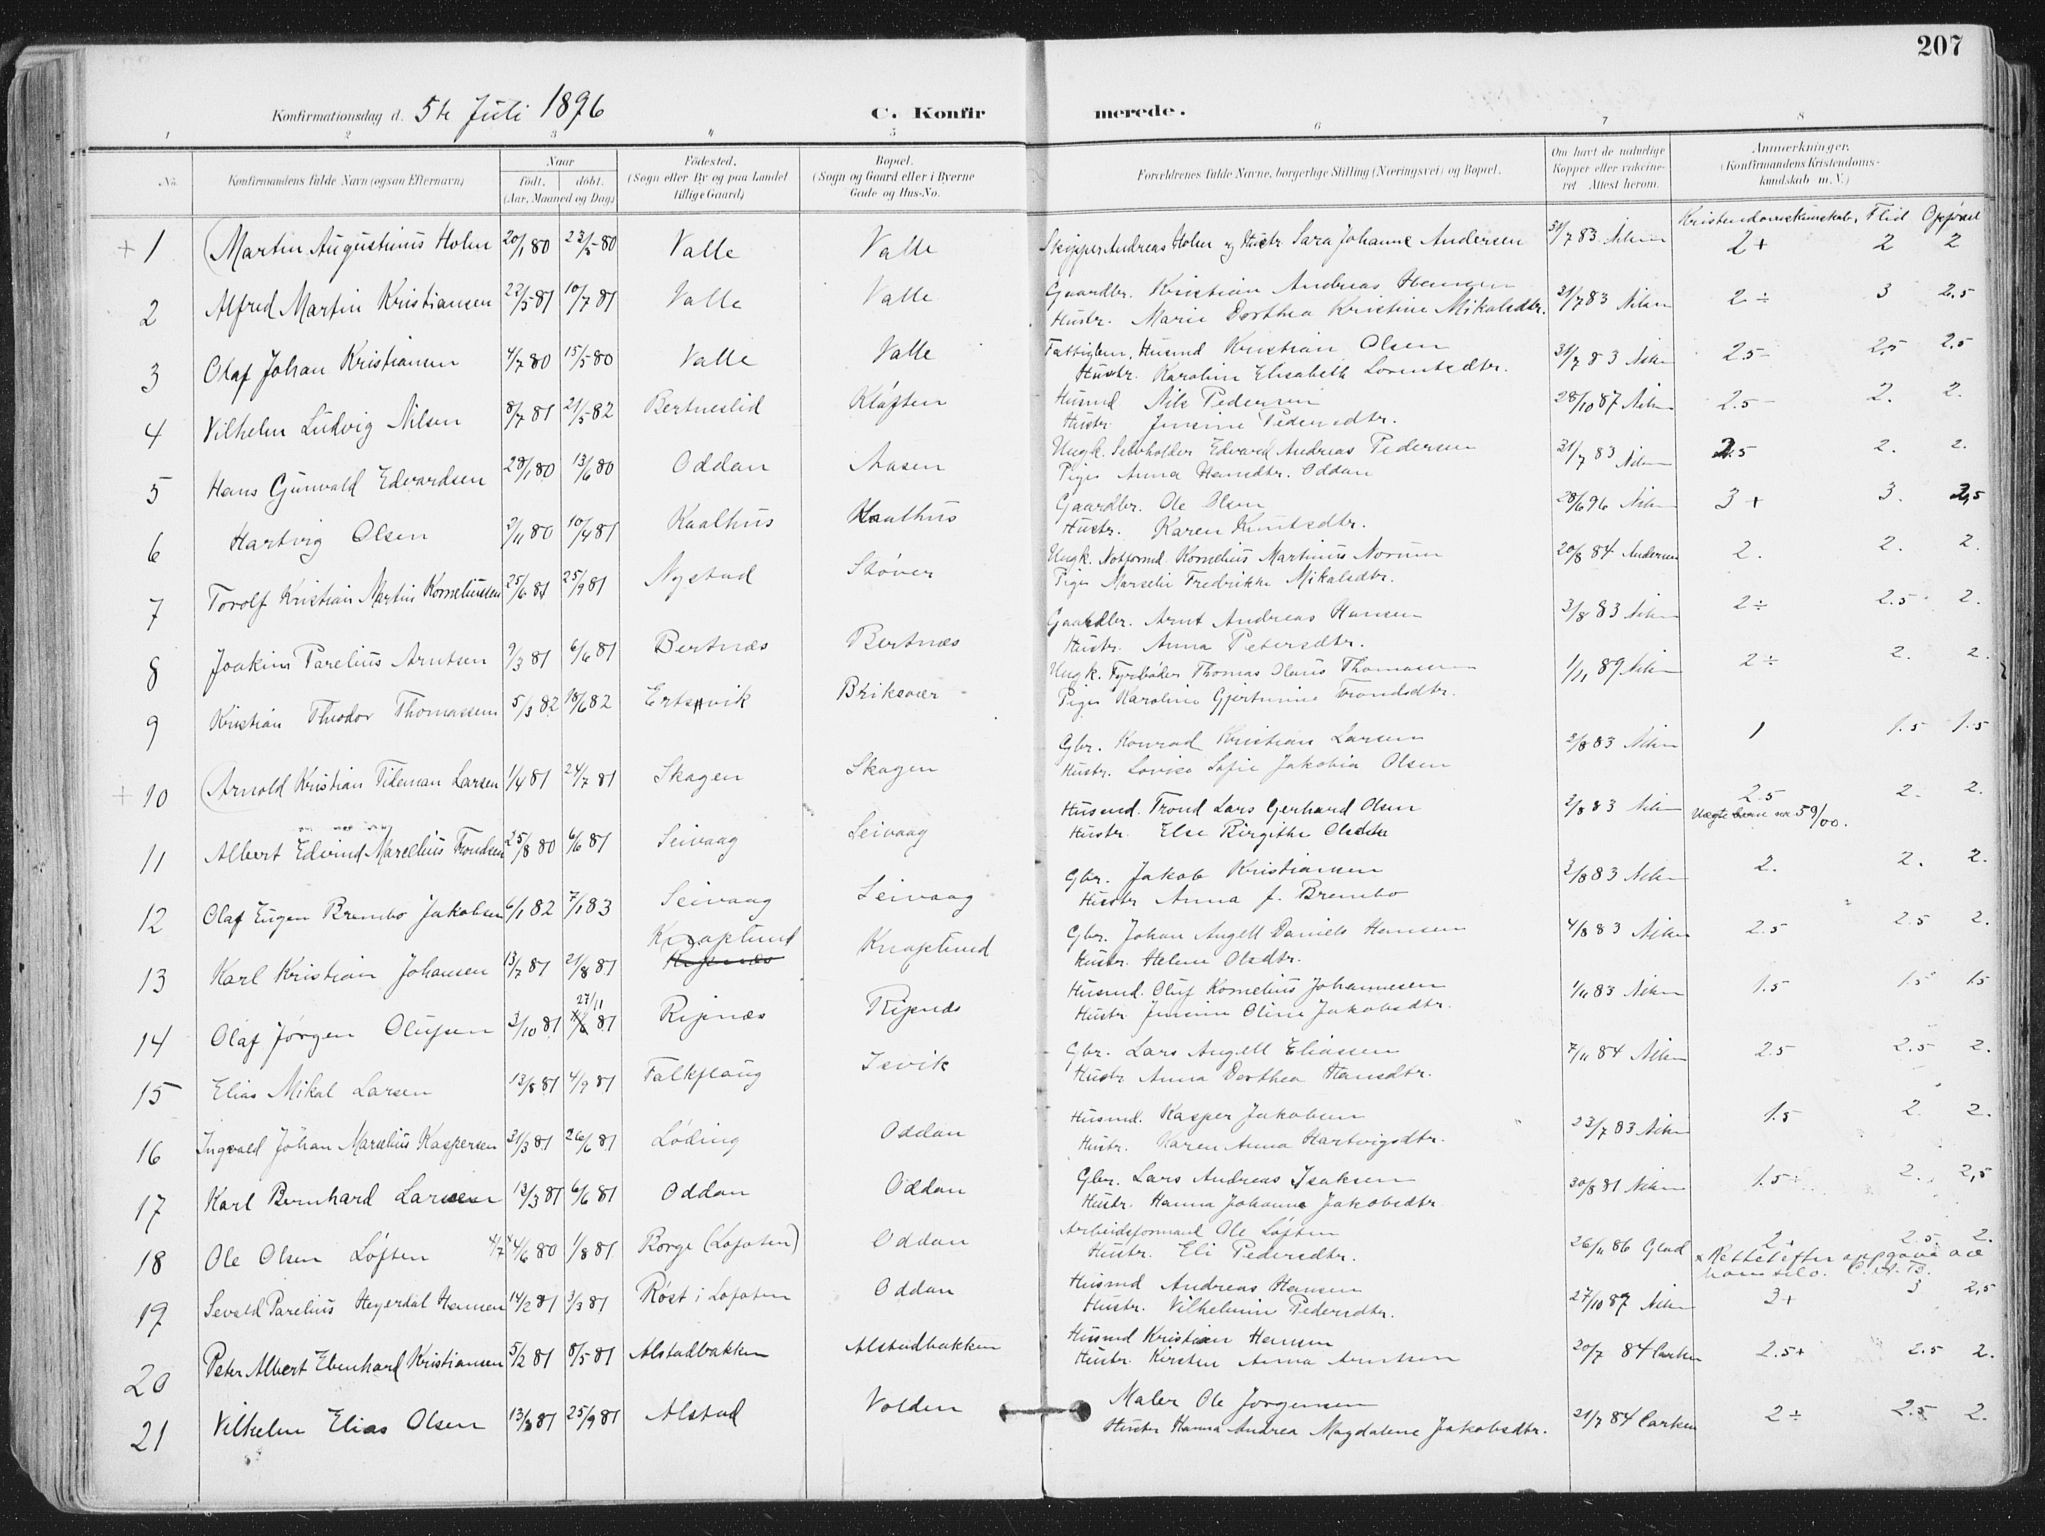 207
Konfirmationsdag d. 5te Juli 1896
C. Konfirmerede.
1 2 3 4 5 6 7 8
No. Konfirmandens fulde Navn (ogsaa Efternavn) Naar født. døbt. (Aar, Maaned og Dag) Fødested. (Sogn eller By og paa Landet tillige Gaard) Bopæl. (Sogn og Gaard eller i Byerne Gade og Hus-No. Forældrenes fulde Navne, borgerlige Stilling (Næringsvei) og Bopæl. Om havt de naturlige Kopper eller vakcineret. Attest herom. Anmærkninger. (Konfirmandens Kristendomskundskab m. V.)
Kristendomskundskab, Flid Opførsel
+ 1 Martin Augustinus Holm 20/1 80 23/5 80 Valle Valle Skipper Andreas Holm og Hustr Sara Johanne Andersen 31/7 83 Nilsen 2+ 2 2
2 Alfred Martin Kristiansen 22/5 81 10/7 81 Valle Valle Gaardbr. Kristian Andreas Hansen
Hustr. Marie Dorthea Kristine Mikalsdtr. 31/7 83 Nilsen 2÷ 3 2,5
3 Olaf Johan Kristiansen 4/7 80 15/5 80 Valle Valle Fattiglem, Husmd Kristian Olsen
Hustr. Karoline Elisabeth Lorentsdtr. 31/7 83 Nilsen 2.5 2.5 2.5
4 Vilhelm Ludvig Nilsen 8/7 81 21/5 82 Bertneslid Kløften Husmd Nils Pedersen
Hustr. Jensine Pedersdtr. 28/10 87 Nilsen 2.5 2. 2.
5 Hans Gunvald Edvardsen 28/1 80 13/6 80 Oddan Aasen Ungk. Selvholder Edvard Andreas Pedersen
Pige Anna Hansdtr. Oddan 31/7 83 Nilsen 2.5 2. 2.
6 Hartvig Olsen 2/11 80 10/4 81 Kaalhus Kaalhus Gaardbr. Ole Olsen
Hustr. Karen Knutsdtr. 28/6 96 Nilsen 3+ 3. 2,5
7 Torolf Kristian Martin Korneliussen 25/6 81 25/9 81 Nystad Støver Ungk. Notformd. Kornelius Martinus Norum
Pige Marselie Fredrikke Mikalsdtr. 20/8 84 Andersen 2. 2. 2.
8 Joakim Parelius Arntsen 9/3 81 6/6 81 Bertnæs Bertnæs Gaardbr. Arnt Andreas Hansen
Hustr. Anna Petersdtr. 3/8 83 Nilsen 2÷ 2.5 2.
9 Kristian Theodor Thomassen 5/3 82 18/6 82 Ertsvik Briksvær Ungk. Fyrbøder Thomas Olaus Thomassen
Pige Karoline Gjertmine Trondsdtr. 1/11 89 Nilsen 2÷ 2. 2.
+ 10 Arnold Kristian Tileman Larsen 1/4 81 24/7 81 Skagen Skagen Gbr. Konrad Kristian Larsen
Hustr. Lovise Sofie Jakobia Olsen 2/8 83 Nilsen 1 1.5 1.5
11 Albert Edvind Marcelius Trondsen 25/8 80 6/6 81 Seivaag Seivaag Husmd. Trond Lars Gerhard Olsen
Hustr. Else Birgithe Olsdtr 2/8 83 Nilsen 2.5 2. 2.
59/00.
12 Olaf Eugen Brembo Jakobsen 6/1 82 7/1 83 Seivaag Seivaag Gbr. Jakob Kristiansen
Hustr Anna f. Brembo 2/8 83 Nilsen 2. 2. 2.
13 Karl Kristian Johansen 13/7 81 21/8 81 Knaplund Knaplund Gbr. Johan Angell Daniels Hansen
Hustr. Helene Olsdtr. 4/8 83 Nilsen 2.5 2.5 2.
14 Olaf Jørgen Olufsen 3/10 81 27/11 81 Ripnæs Ripnæs Husmd. Oluf Kornelius Johannesen
Hustr Jensine Oline Jakobsdtr. 1/11 83 Nilsen 1.5 1.5 1.5
15 Elias Mikal Larsen 13/8 81 4/9 81 Falkflaug Isvik Gbr. Lars Angell Eliassen
Hustr Anna Dorthea Hansdtr. 7/11 84 Nilsen 2.5 2.5 2.
16 Ingvald Johan Marselius Kaspersen 31/3 81 26/6 81 Løding Oddan Husmd. Kasper Jakobsen
Hustr. Karen Anna Hartvigsdtr. 23/7 83 Nilsen 1.5 2. 2.
17 Karl Bernhard Larsen 13/3 81 6/6 81 Oddan Oddan Gbr. Lars Andreas Isaksen
Hustr. Hanna Johanna Jakobsdtr. 30/8 81 Nilsen 1.5÷ 2. 2,5
18 Ole Olsen Løften 4/7 4/6 80 1/8 81 Borge (Lofoten) Oddan Arbeidsformand Ole Løften
Hustr. Eli Pedersdtr. 26/11 86 Glad 2+ 2.5. 2.
x Rettet efter opgave
19 Sevald Parelius Heyerdal Hansen 14/2 81 3/3 81 Røst i Lofoten Oddan Husmd Andreas Hansen
Hustr. Vilhelmine Pedersdtr. 27/10 87 Nilsen 3+ 3 2,5
20 Peter Albert Ebenhard Kristiansen 5/2 81 8/5 81 Alstadbakken Alstadbakken Husmd Kristian Hansen
Hustr. Kirsten Anna Arntsen 20/7 84 Carlsen 2.5+ 2.5 2.
21 Vilhelm Elias Olsen 13/3 81 25/9 81 Alstad Volden Maler Ole Jørgensen
Hustr Hanna Andrea Magdalene Jakobsdtr. 21/7 84 Carlsen 2÷ 2.5 2.